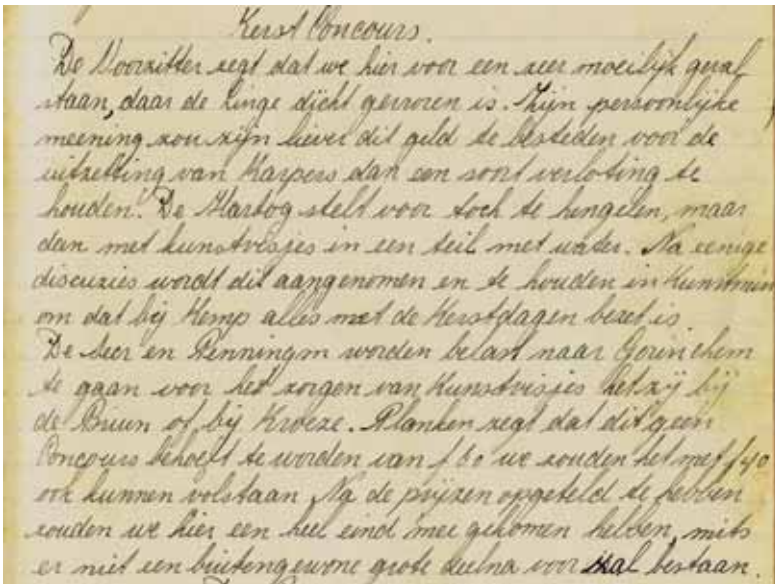 Kerst Concours.
De Voorzitter zegt dat we hier voor een zeer moeilijk geval
staan, daar de Linge dicht gevroren is. Zijn persoonlijke
meening zou zijn liever dit geld te besteden voor de
uitzetting van Karpers dan een soort verloting te
houden! De Hartog stelt voor toch te hengelen, maar
dan met kunstvisjes in een teil met water. Na eenige
discuzies wordt dit aangenomen en te houden in Kunstmin
om dat bij Kemp alles met de Kerstdagen bezet is
De Seer en Penningm worden belast naar Gorinchem
te gaan voor het zorgen van Kunstvisjes hetzij bij
de Bruin of bij Kroeze. Planken zegt dat dit geen
Concours behoeft te worden van f 60 we zouden het met f 40
ook kunnen volstaan Na de prijzen opgeteld te hebben
zouden we hier een heel eind mee gekomen hebben, mits
er niet een buitengewone grote deelna voor zal bestaan.